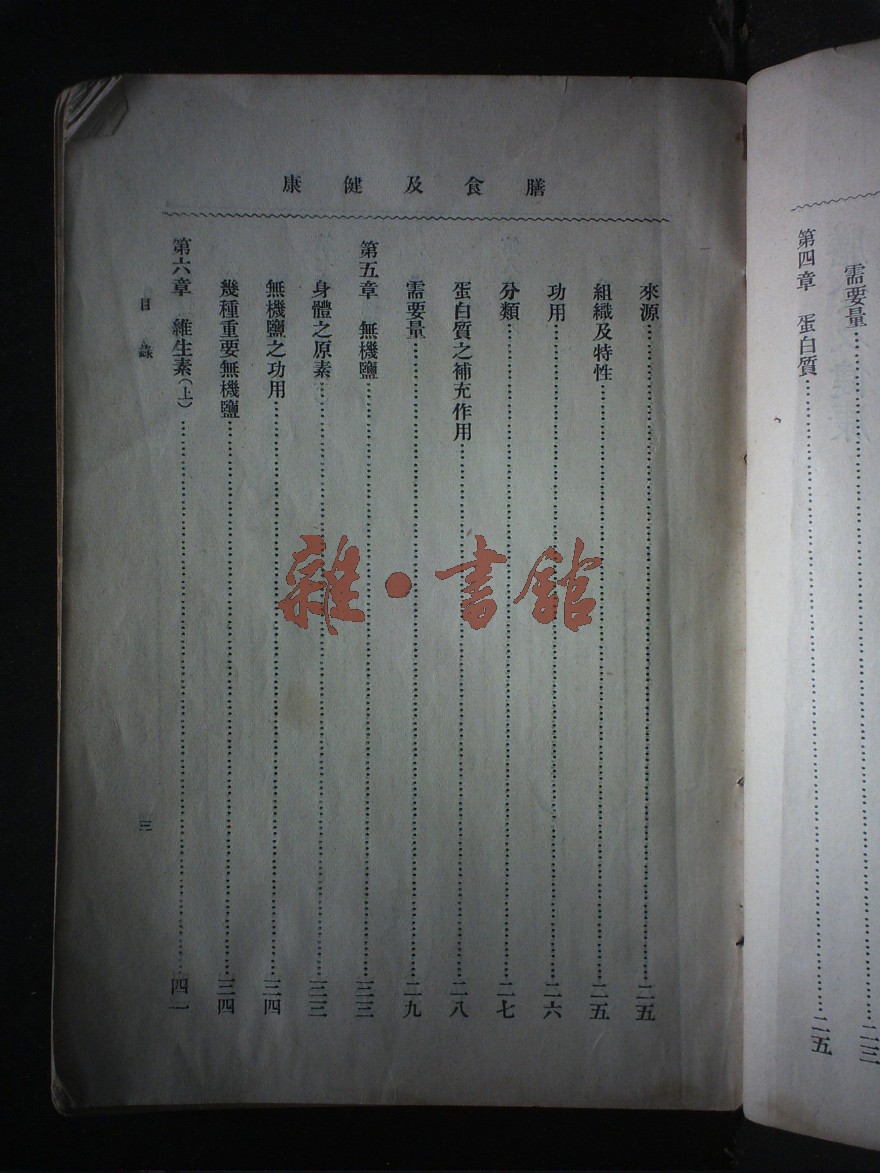 需要量……二三
第四章　蛋白質……二五
膳食及健康
來源……二五
組織及特性……二五
功用……二六
分類……二七
蛋白質之補充作用……二八
需要量……二九
第五章　無機鹽……三三
身體之原素……三三
無機鹽之功用……三四
幾種重要無機鹽……三四
第六章　維生素(上)……四一
目錄
三
雜·書館